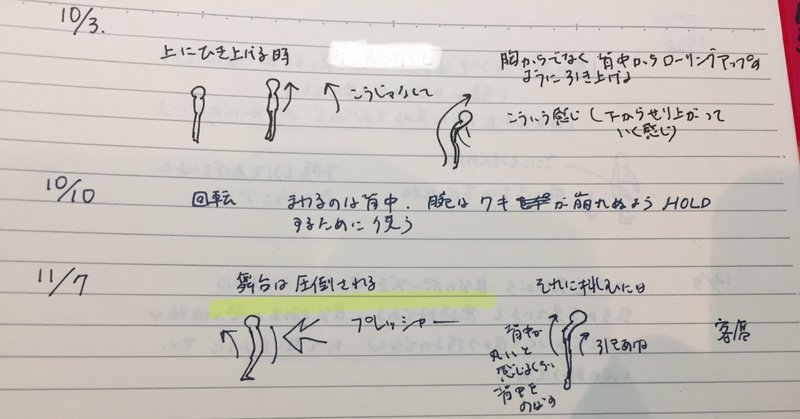 10/3.
上にひき上げる時
こうじゃなくて
胸からでなく 背中からローリングアップの
ように引き上げる
こういう感じ (下からせり上がって
いく感じ)
10/10
回転
まわるのは背中. 腕はワキが崩れぬよう HOLD
するために使う
11/7
舞台は圧倒される
プレッシャー
それに挑むには
背中が
丸いと
感じなくない
背中を
のばす
引きあげる
客席